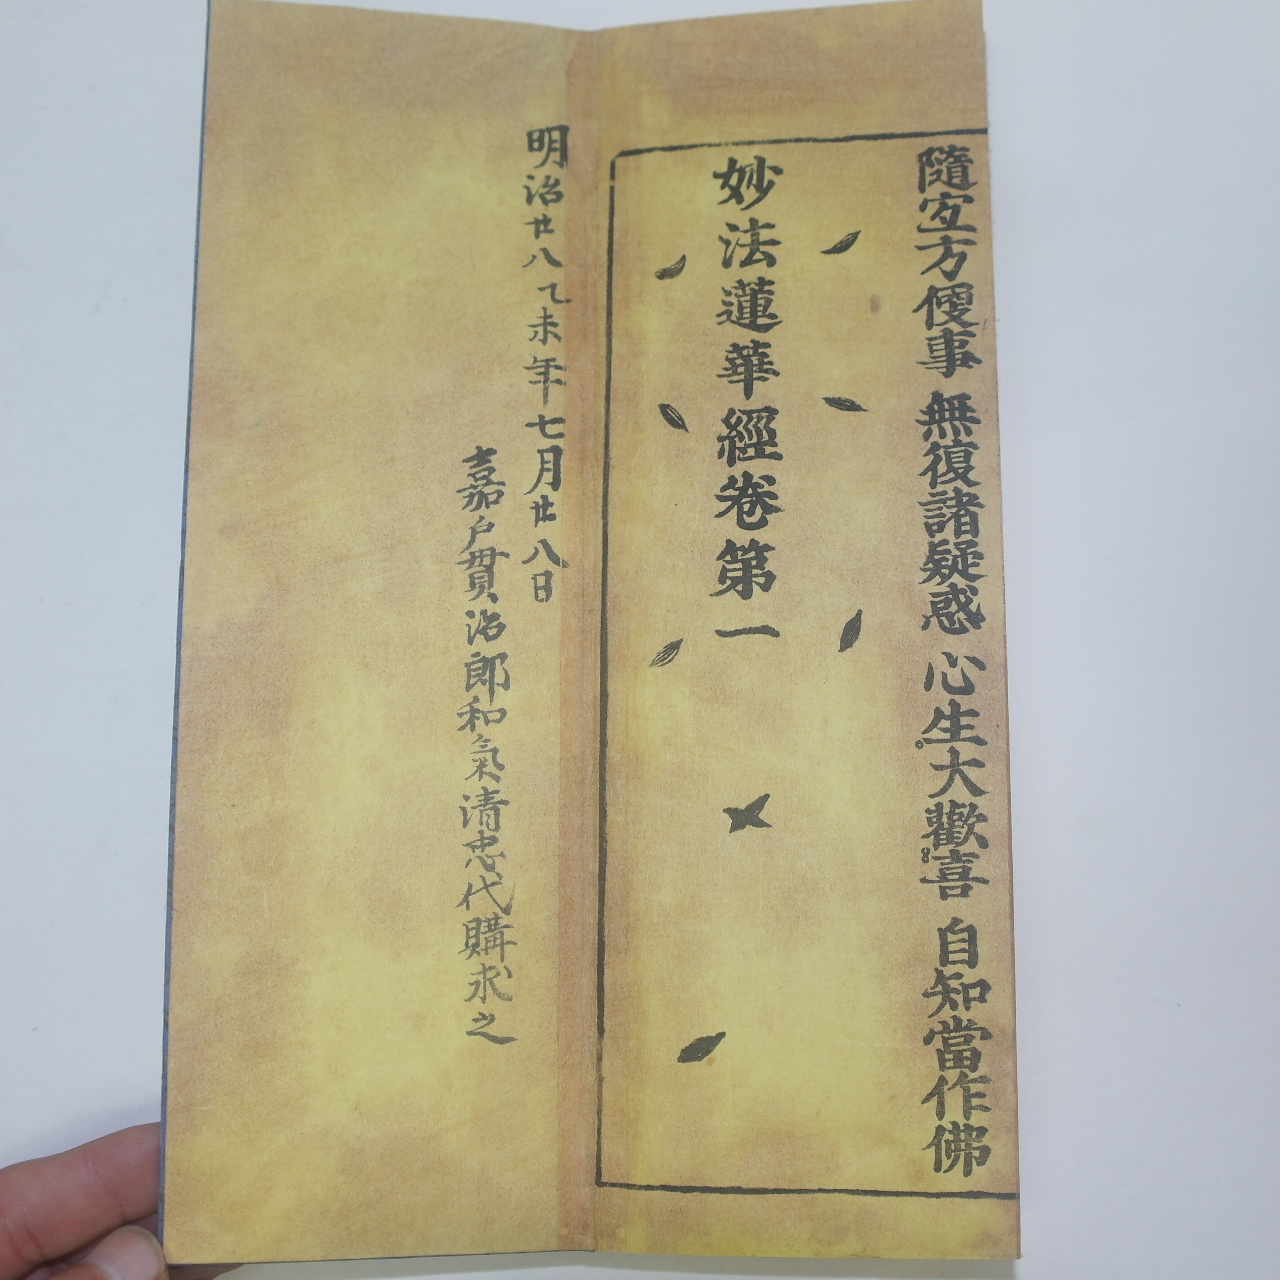 隨宐方便事 無復諸疑惑 心生大歡喜 自知當作佛
妙法蓮華經卷第一
明治廿八乙未年七月廿八日
嘉戶貫治郎和氣清忠代購求之